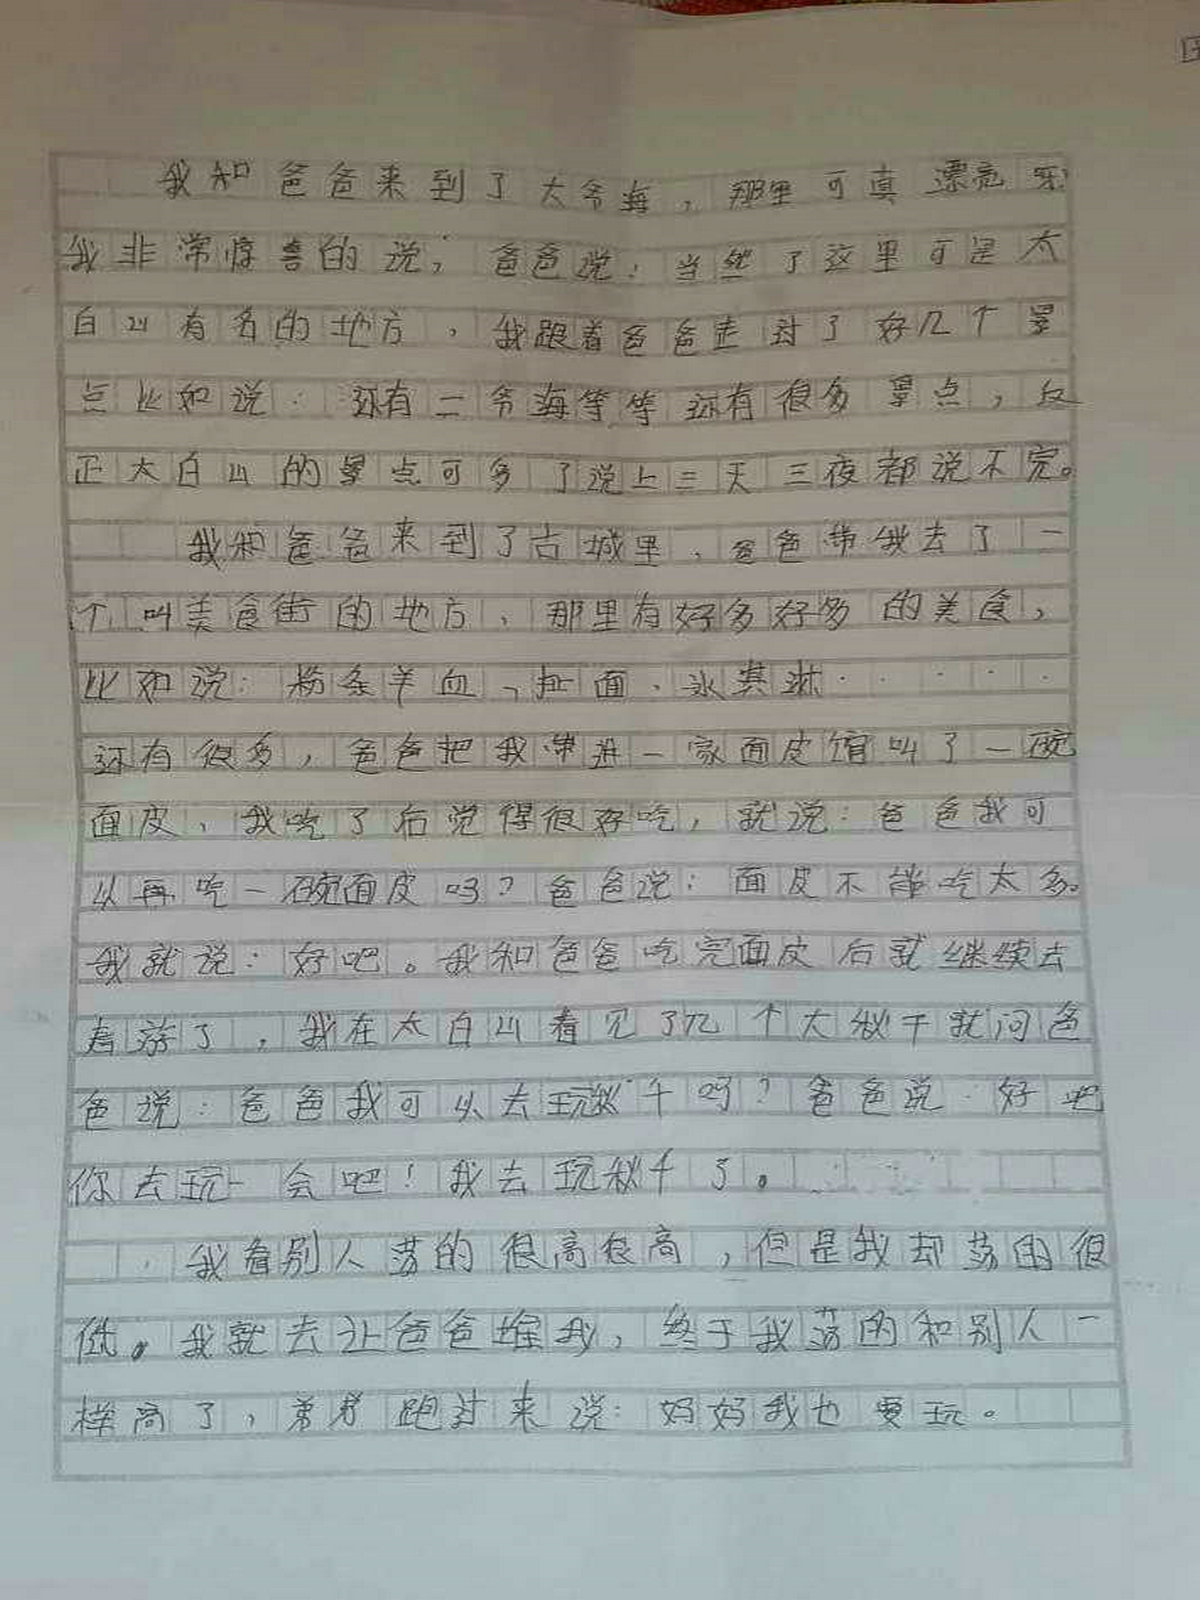 我和爸爸来到了大爷海，那里可真漂亮呀
我非常惊喜的说，爸爸说：当然了这里可是太
白山有名的地方，我跟着爸爸走过了好几个景
点比如说：还有二爷海等等还有很多景点，反
正太白山的景点可多了说上三天三夜都说不完。
我和爸爸来到了古城里，爸爸带我去了一
个叫美食街的地方，那里有好多好多的美食，
比如说：粉条羊血、扯面、冰淇淋·····
还有很多，爸爸把我带进一家面皮馆叫了一碗
面皮，我吃了后觉得很好吃，就说：爸爸我可
以再吃一碗面皮吗？爸爸说：面皮不能吃太多。
我就说：好吧。我和爸爸吃完面皮后就继续去
春游了，我在太白山看见了几个大秋千就问爸
爸说：爸爸我可以去玩秋千吗？爸爸说：好吧
你去玩一会吧！我去玩秋千了。
我看别人荡的很高很高，但是我却荡的很
低。我就去让爸爸推我，终于我荡的和别人一
样高了，弟弟跑过来说：妈妈我也要玩。